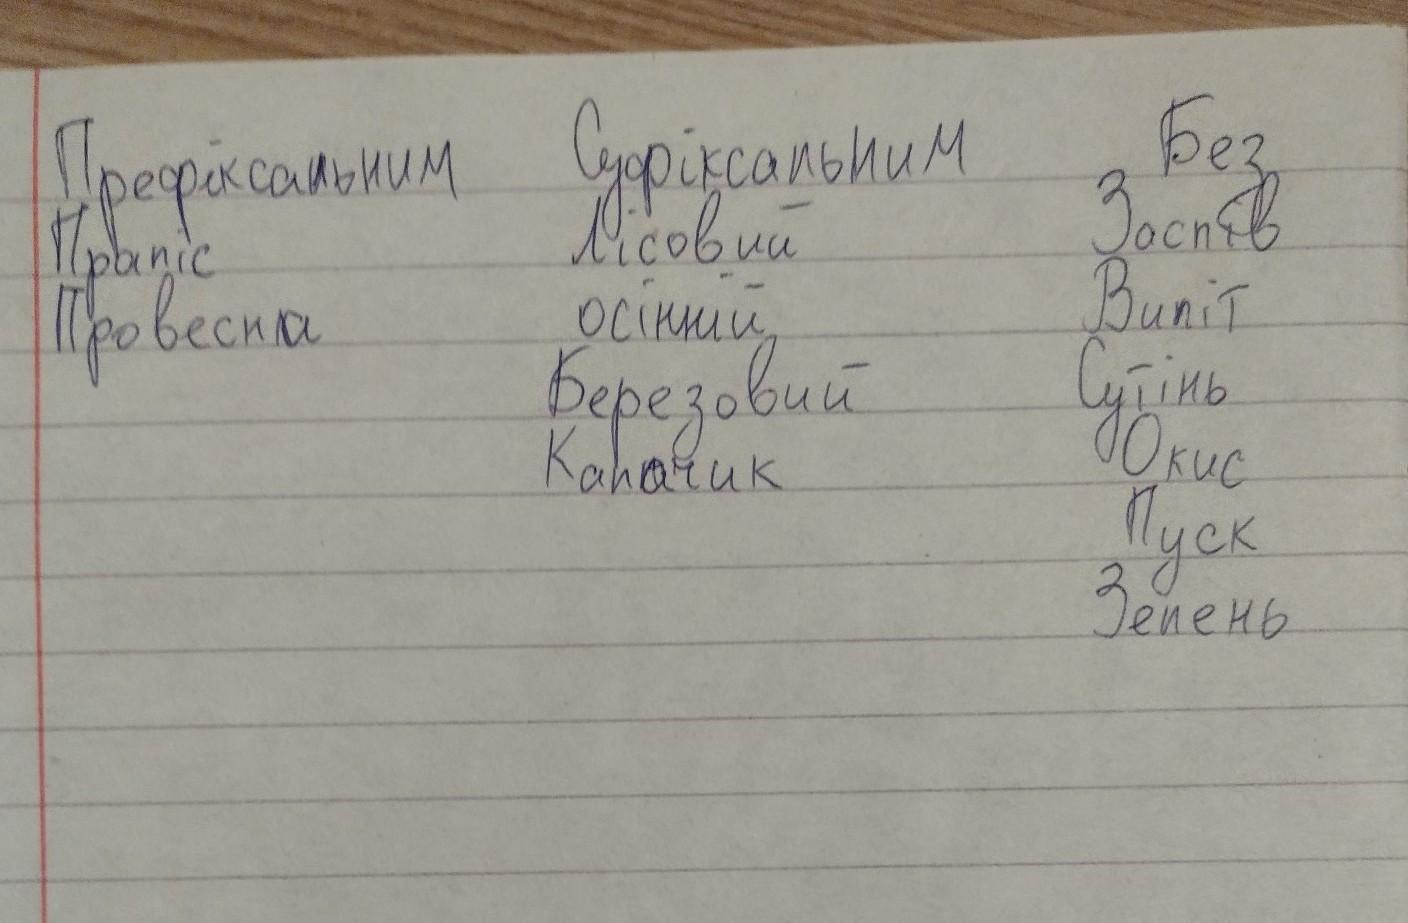 Префіксальним Суфіксальним Без
Праліс Лісовий Заспів
Провесна осінній Виліт
Березовий Сутінь
Калачик Окис
Пуск
Зелень